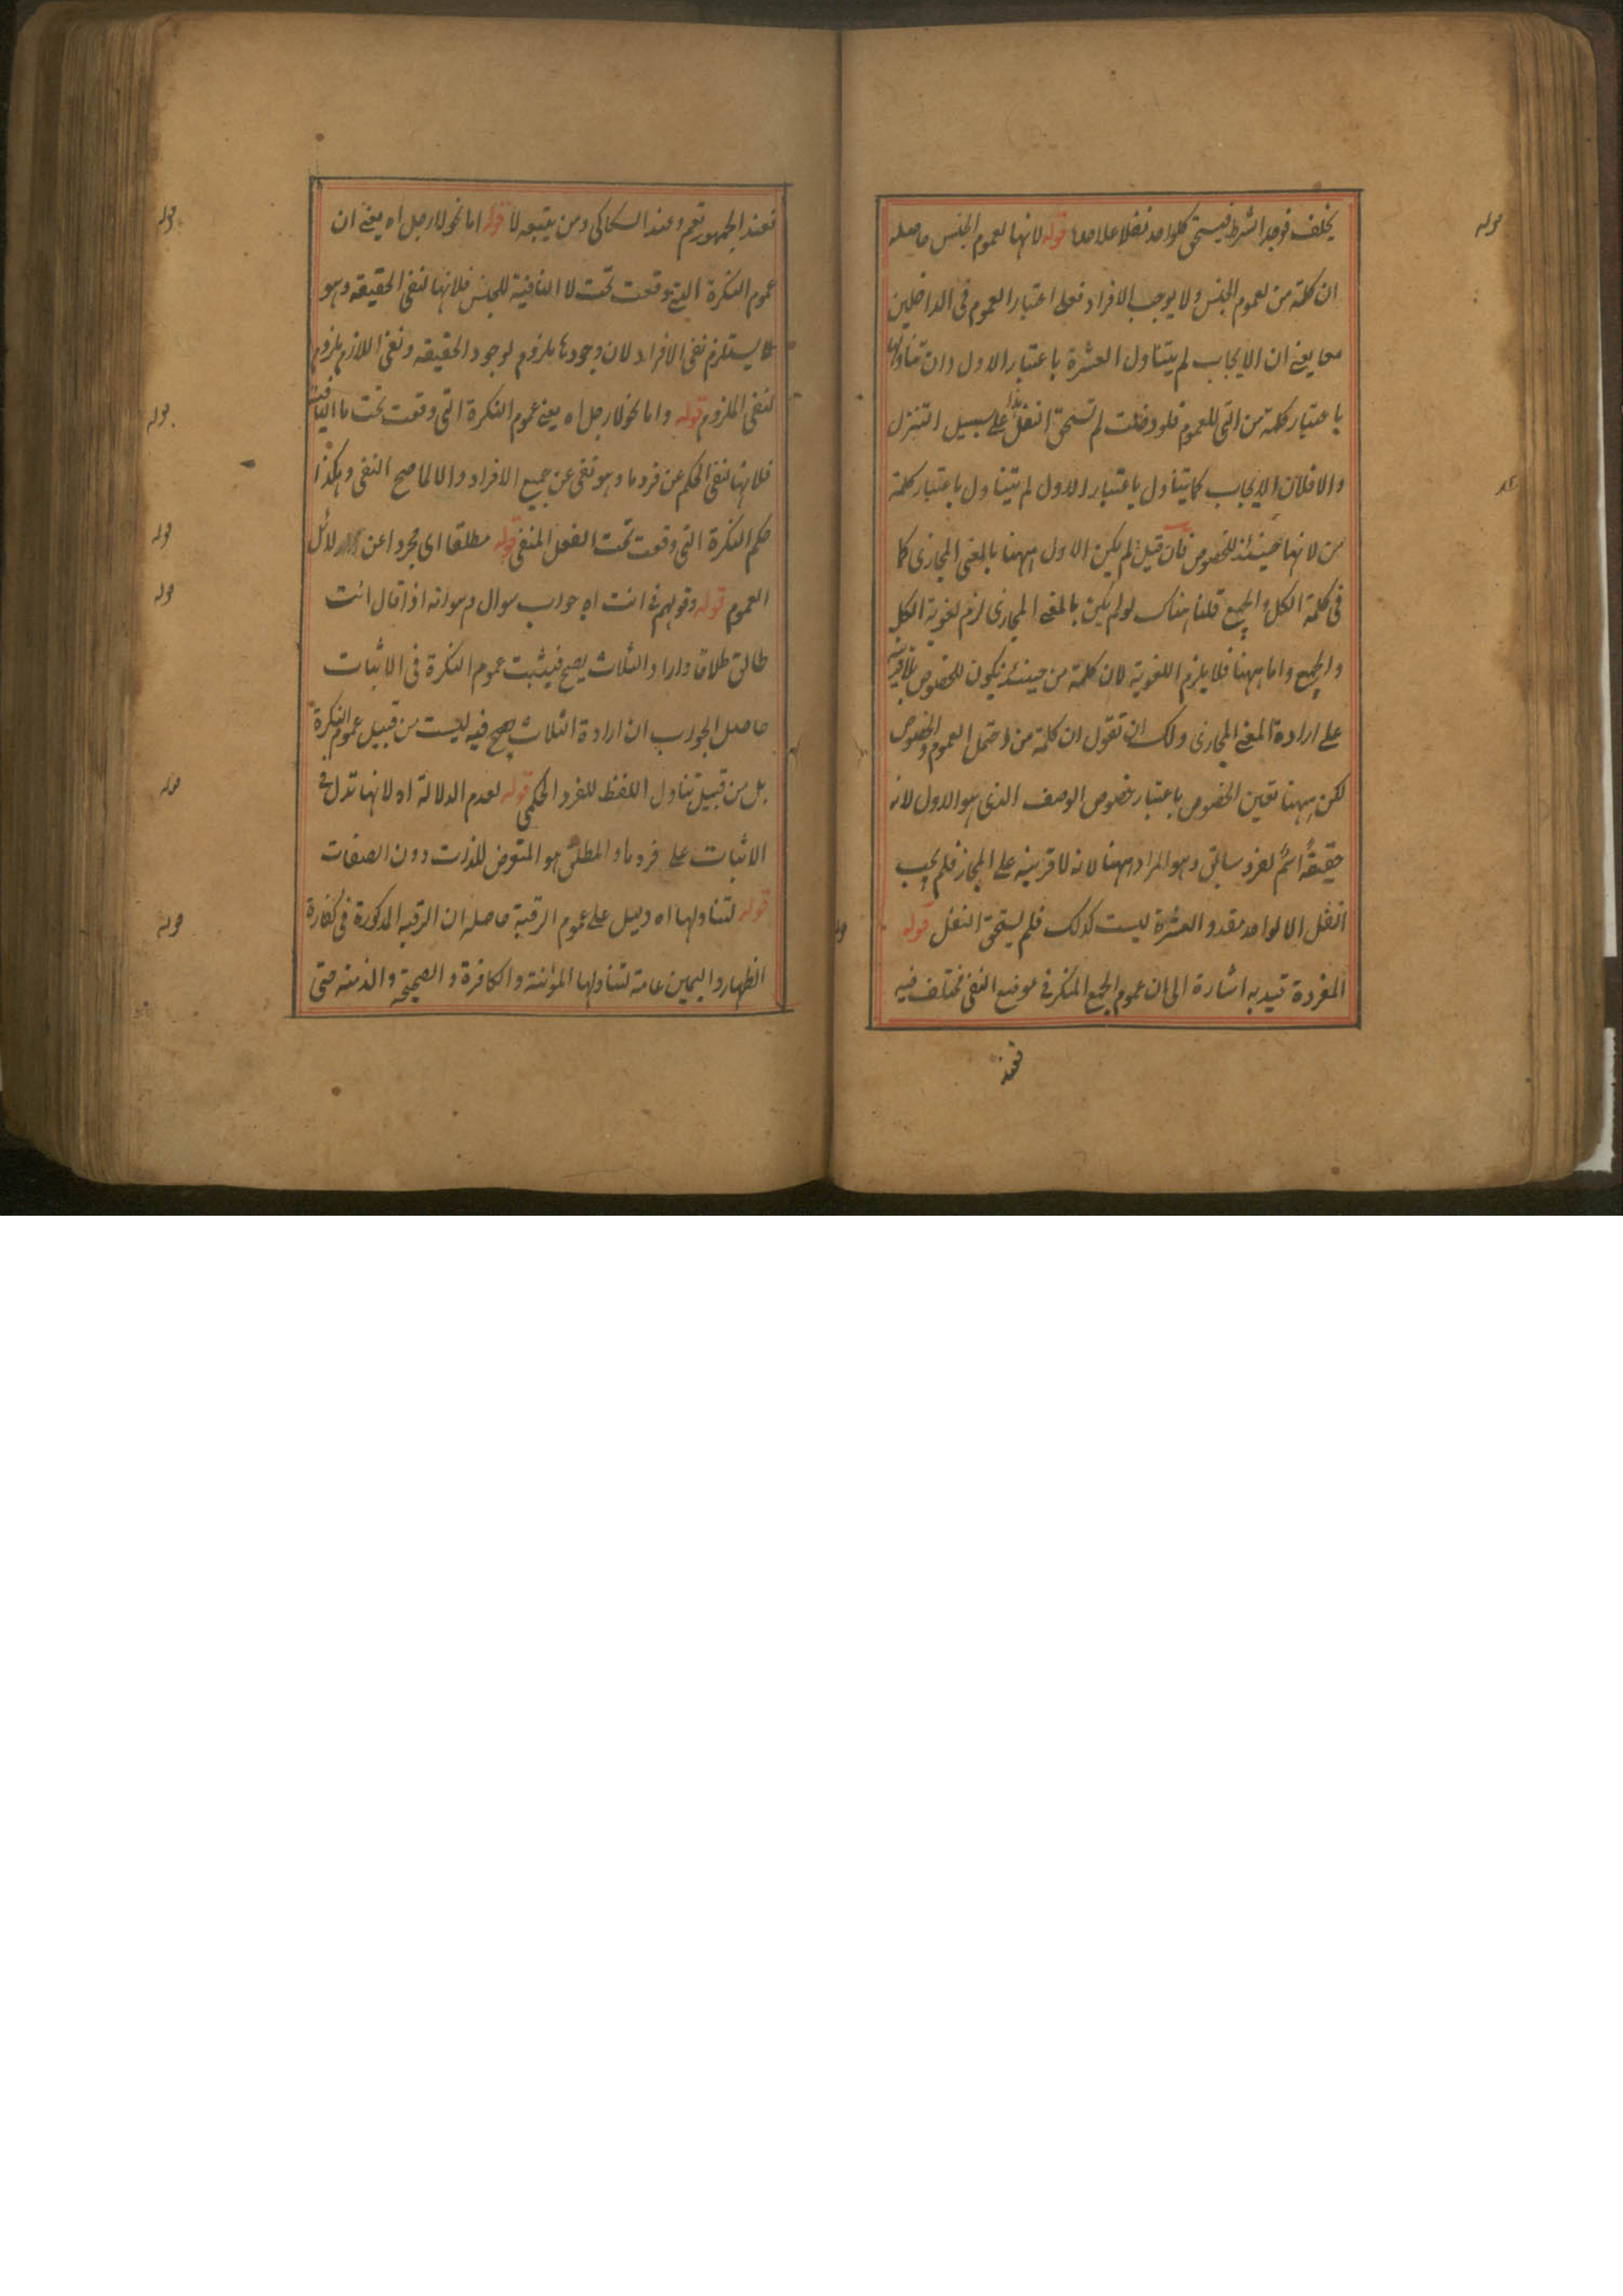 يخلف فوجد الشرط فيستحق كلواحد نفلا علاحدا قوله لانها لعموم الجنس حاصله
ان كلمة من لعموم الجنس ولا يوجب الافراد فعلى اعتبار العموم فى الداخلين
معا يعنى ان الايجاب لم يتناول العشرة باعتبار الاول وان تناولها
باعتبار كلمة من التى للعموم فلو دخلت لم تستحق النفل هذا على سبيل التنزل
والا فلان الايجاب كما يتناول باعتبار الاول لم يتناول باعتبار كلمة
من لانها حينئذ للخصوص فان قيل لم يكن الاول ههنا بالمعنى المجازى كما
فى كلمة الكل والجميع قلنا هناك لو لم يكن بالمعنى المجازى لزم لغوية الكل
والجميع واما ههنا فلا يلزم اللغوية لان كلمة من حينئذ يكون للخصوص بلا قرينة
على ارادة المعنى المجازى ولك ان تقول ان كلمة من احتمل العموم والخصوص
لكن ههنا تعين الخصوص باعتبار خصوص الوصف الذى هو الاول لانه
حقيقةً اسم لفرد سابق وهو المراد ههنا لانه لا قرينة على المجاز فلم يجب
النفل الا لواحد متقدم والعشرة ليست كذلك فلم يستحق النفل قوله
المفردة قيد به اشارة الى ان عموم الجمع المنكر فى موضع النفى مختلف فيه
فعند
فعند الجمهور تعم وعند السكاكى ومن يتبعه لا قوله اما نحو لا رجل اه يعنى ان
عموم النكرة التى وقعت تحت لا النافية للجنس فلانها لنفى الحقيقة وهو
يستلزم نفى الافراد لان وجودها ملزوم لوجود الحقيقة ونفى اللازم ملزوم
لنفى الملزوم قوله واما نحو لا رجل اه يعنى عموم النكرة التى وقعت تحت ما النافية
فلانها لنفى الحكم عن فرد ما وهو نفى عن جميع الافراد والا لما صح النفى وهكذا
حكم النكرة التى وقعت تحت الفعل المنفى قوله مطلقا اى مجردا عن دلائل
العموم قوله وقولهم فى انت اه جواب سوال وهو انه اذا قال انت
طالق طلاقا واراد الثلاث يصح فيثبت عموم النكرة فى الاثبات
حاصل الجواب ان ارادة الثلاث يصح فيه ليست من قبيل عموم النكرة
بل من قبيل تناول اللفظ للفرد الحكمى قوله لعدم الدلالة اه لانها تدل فى
الاثبات على فرد ما والمطلق هو المتعرض للذات دون الصفات
قوله لتناولها اه دليل على عموم الرقبة حاصله ان الرقبة المذكورة فى كفارة
الظهار واليمين عامة لتناولها المؤمنة والكافرة والصحيحة والذمنة حتى
قوله
قوله
قوله
قوله
قوله
قوله
قوله